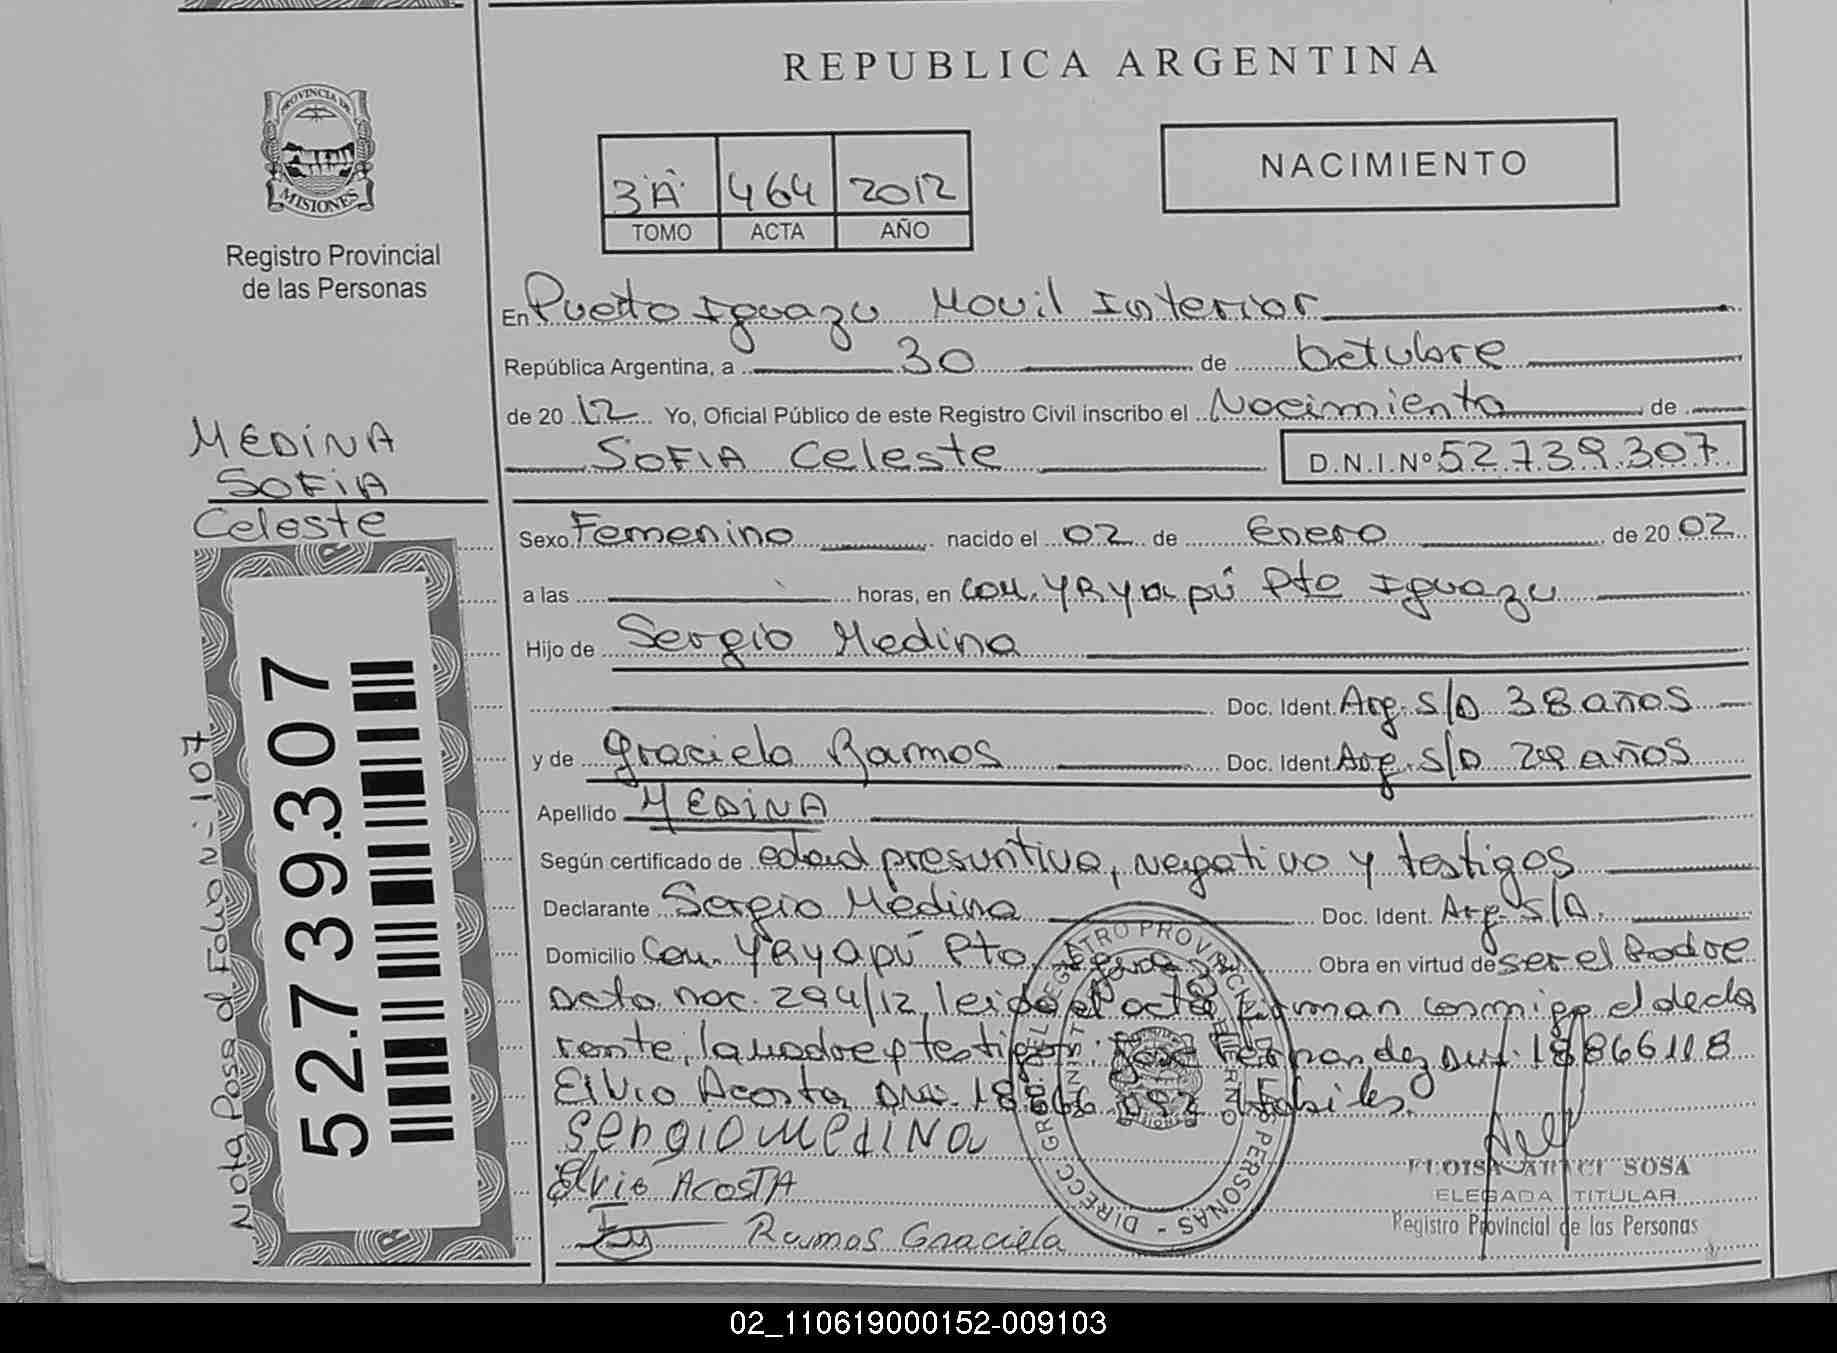 REPUBLICA ARGENTINA
PROVINCIA DE
MISIONES
Registro Provincial
de las Personas
3"A" 464 2012
TOMO ACTA AÑO
NACIMIENTO
En Puerto Iguazu Movil Interior
República Argentina, a 30 de Octubre
de 2012 Yo, Oficial Público de este Registro Civil inscribo el Nacimiento de
SOFIA Celeste D.N.I.Nº 52.739.307
MEDINA
SOFIA
Celeste
Sexo Femenino nacido el 02 de Enero de 20 02
a las horas, en Com. YRYapú Pto Iguazu
Hijo de Sergio Medina
Doc. Ident. Arg. S/D 38 años
y de Graciela Ramos Doc. Ident. Arg. S/D 29 años
Apellido MEDINA
Según certificado de edad presuntiva, negativo y testigos
Declarante Sergio Medina Doc. Ident. Arg. S/D.
Domicilio Com. YRYapú Pto. Iguazu Obra en virtud de ser el Padre
acta nac. 294/12, leida el acta firman conmigo el decla
rante, la madre y testigos: Jose Fernandez DNI. 18866118
Elvio Acosta DNI. Habiles.
Sergio Medina
Elvio Acosta
Ramos Graciela
52.739.307
Nota Pasa al Folio Nº 107
DIRECC GRAL DEL REGISTRO PROVINCIAL DE LAS PERSONAS
SOSA
ELEGADA TITULAR
Registro Provincial de las Personas
02_110619000152-009103